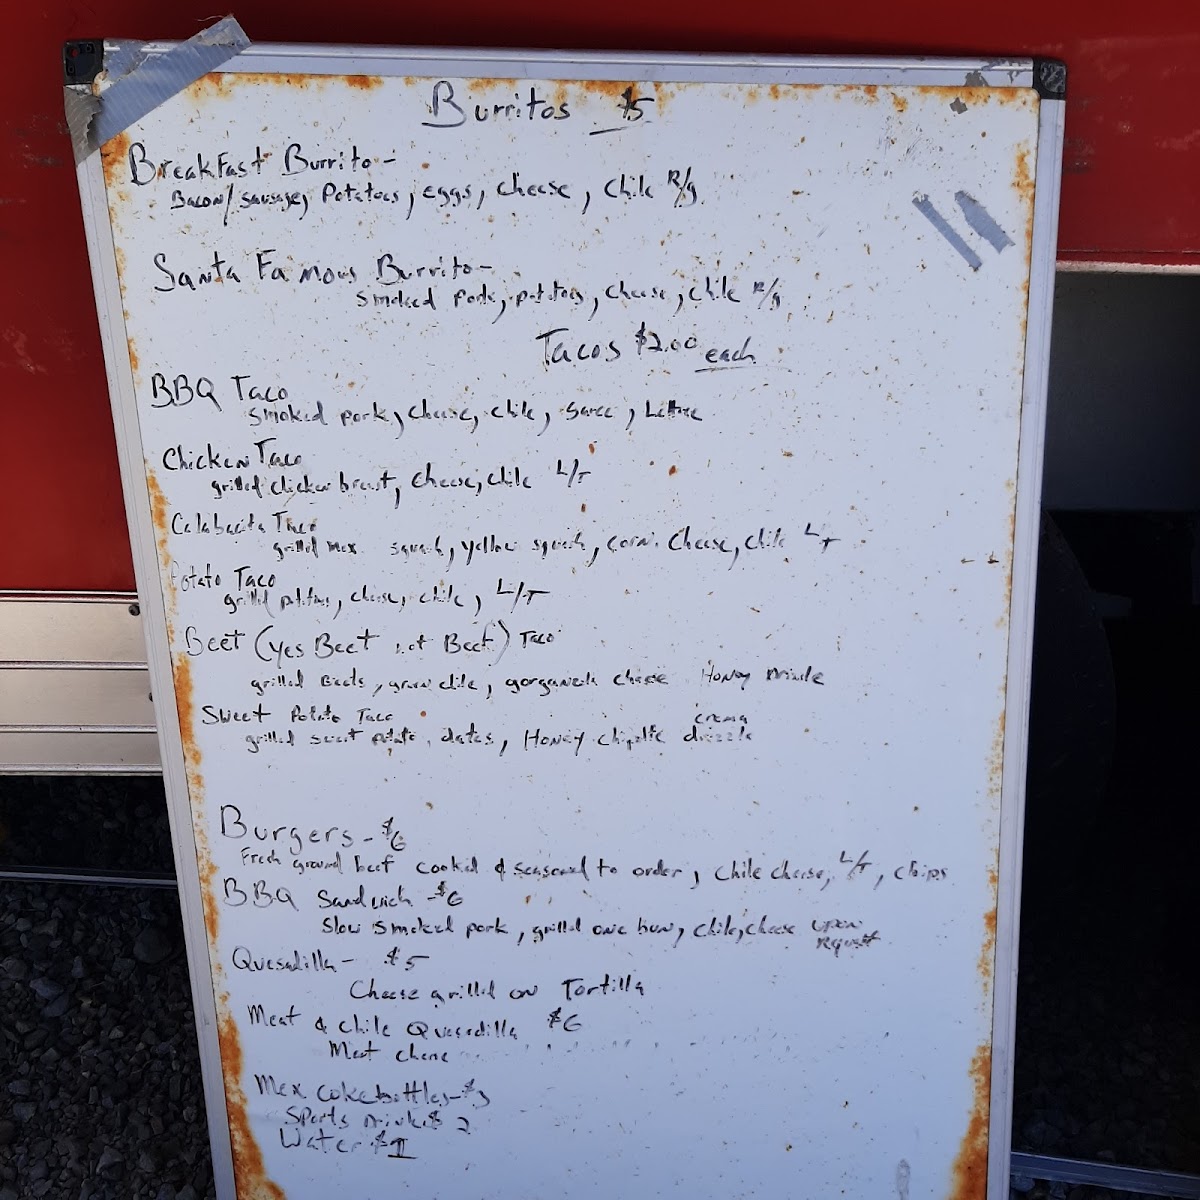 Burritos $5
Breakfast Burrito-
Bacon/sausage, Potatoes, eggs, cheese, Chile R/g
Santa Famous Burrito-
Smoked Pork, potatoes, Cheese, Chile R/g
Tacos $2.00 each
BBQ Taco
Smoked pork, Cheese, chile, Sauce, Lettuce
Chicken Taco
grilled chicken breast, Cheese, Chile L/T
Calabacita Taco
grilled mex squash, yellow squash, corn, Cheese, Chile L/T
Potato Taco
grilled potatoes, cheese, chile, L/T
Beet (yes Beet not Beef) Taco
grilled Beets, green chile, cheese Honey
Sweet Potato Taco
grilled sweet potato, dates, Honey chipotle crema drizzle
Burgers - $6
Fresh ground beef cooked & seasoned to order, Chile cheese, L/T, Chips
BBQ Sandwich - $6
Slow smoked pork, grilled one bun, chile, cheese upon Rqust
Quesadilla - $5
Cheese grilled on Tortilla
Meat & Chile Quesadilla $6
Meat
Mex coke bottles - $3
Sports Drink $2
Water $1